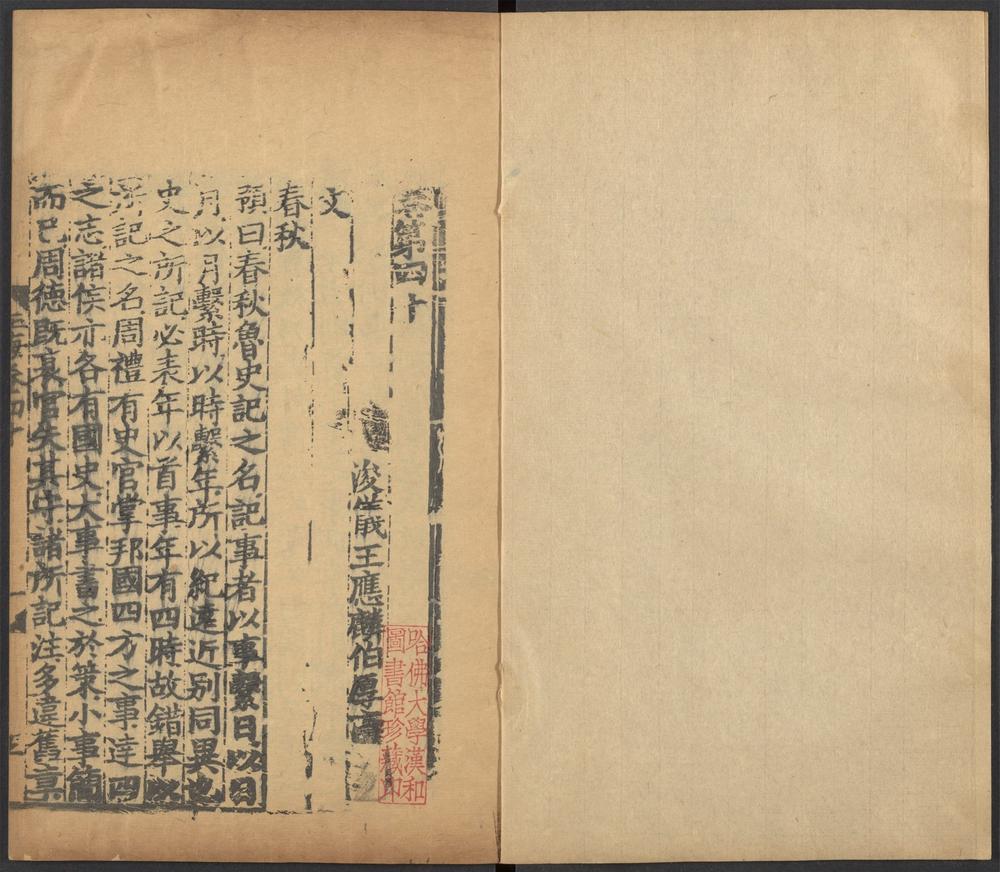 卷第四十
浚儀王應麟伯厚甫
文
春秋
預曰春秋魯史記之名記事者以事繫日以日
月以月繫時以時繫年所以紀遠近別同異也
史之所記必表年以首事年有四時故錯舉以
所記之名周禮有史官掌邦國四方之事達四
之志諸侯亦各有國史大事書之於策小事簡
而已周德既衰官失其守諸所記注多違舊章
玉海卷四十
哈佛大學漢和
圖書館珍藏印